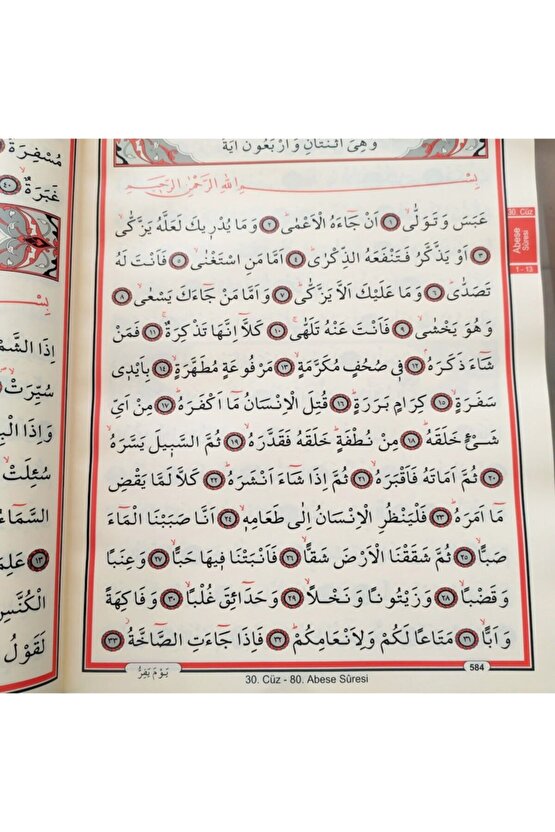 وَهِىَ اثْنَتَانِ وَاَرْبَعُونَ اٰيَةً
بِسْــــمِ اللّٰهِ الرَّحْمٰنِ الرَّحٖيمِ
عَبَسَ وَتَوَلّٰىۙ ﴿١﴾ اَنْ جَٓاءَهُ الْاَعْمٰىۜ ﴿٢﴾ وَمَا يُدْرٖيكَ لَعَلَّهُ يَزَّكّٰىۙ
﴿٣﴾ اَوْ يَذَّكَّرُ فَتَنْفَعَهُ الذِّكْرٰىۜ ﴿٤﴾ اَمَّا مَنِ اسْتَغْنٰىۙ ﴿٥﴾ فَاَنْتَ لَهُ
تَصَدّٰىۜ ﴿٦﴾ وَمَا عَلَيْكَ اَلَّا يَزَّكّٰىۜ ﴿٧﴾ وَاَمَّا مَنْ جَٓاءَكَ يَسْعٰىۙ ﴿٨﴾
وَهُوَ يَخْشٰىۙ ﴿٩﴾ فَاَنْتَ عَنْهُ تَلَهّٰىۚ ﴿١٠﴾ كَلَّٓا اِنَّهَا تَذْكِرَةٌۚ ﴿١١﴾ فَمَنْ
شَٓاءَ ذَكَرَهُۢ ﴿١٢﴾ فٖى صُحُفٍ مُكَرَّمَةٍۙ ﴿١٣﴾ مَرْفُوعَةٍ مُطَهَّرَةٍۙ ﴿١٤﴾ بِاَيْدٖى
سَفَرَةٍۙ ﴿١٥﴾ كِرَامٍ بَرَرَةٍۜ ﴿١٦﴾ قُتِلَ الْاِنْسَانُ مَٓا اَكْفَرَهُۜ ﴿١٧﴾ مِنْ اَىِّ
شَیْءٍ خَلَقَهُۜ ﴿١٨﴾ مِنْ نُطْفَةٍۜ خَلَقَهُ فَقَدَّرَهُۙ ﴿١٩﴾ ثُمَّ السَّبٖيلَ يَسَّرَهُۙ
﴿٢٠﴾ ثُمَّ اَمَاتَهُ فَاَقْبَرَهُۙ ﴿٢١﴾ ثُمَّ اِذَا شَٓاءَ اَنْشَرَهُۜ ﴿٢٢﴾ كَلَّا لَمَّا يَقْضِ
مَٓا اَمَرَهُۜ ﴿٢٣﴾ فَلْيَنْظُرِ الْاِنْسَانُ اِلٰى طَعَامِهٖۙ ﴿٢٤﴾ اَنَّا صَبَبْنَا الْمَٓاءَ
صَبًّاۙ ﴿٢٥﴾ ثُمَّ شَقَقْنَا الْاَرْضَ شَقًّاۙ ﴿٢٦﴾ فَاَنْبَتْنَا فٖيهَا حَبًّاۙ ﴿٢٧﴾ وَعِنَبًا
وَقَضْبًاۙ ﴿٢٨﴾ وَزَيْتُونًا وَنَخْلًاۙ ﴿٢٩﴾ وَحَدَٓائِقَ غُلْبًاۙ ﴿٣٠﴾ وَفَاكِهَةً
وَاَبًّاۙ ﴿٣١﴾ مَتَاعًا لَكُمْ وَلِاَنْعَامِكُمْۜ ﴿٣٢﴾ فَاِذَا جَٓاءَتِ الصَّٓاخَّةُۘ ﴿٣٣﴾
يَوْمَ يَفِرُّ
584
30. Cüz - 80. Abese Sûresi
30. Cüz
Abese
Sûresi
1 - 13
مُسْفِرَةٌ
غَبَرَةٌۙ ﴿٤٠﴾
بِسْــ
اِذَا الشَّمْ
سُيِّرَتْۙ
وَاِذَا الْبِ
سُئِلَتْۙ
السَّمَٓاءُ
﴿١٣﴾ عَلِمَ
الْكُنَّسِ
لَقَوْلُ